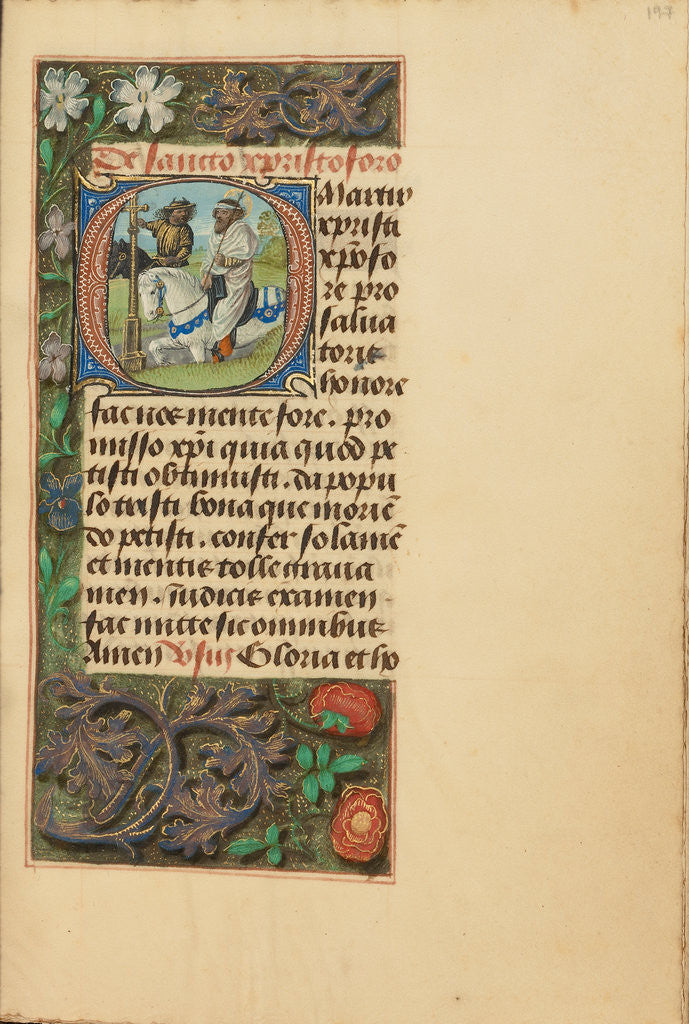 197
De sancto xpristoforo
O Martir
xpristi
xpofo
re pro
salua
toris
honore
fac nos mente fore. pro
misso xpi quia quod pe
tisti obtinuisti. da popu
lo tristi bona que morie͞
do petisti. confer solame͞
et mentis tolle graua
men. iudicis examen
fac mitte sit omnibus
Amen Vsus Gloria et ho